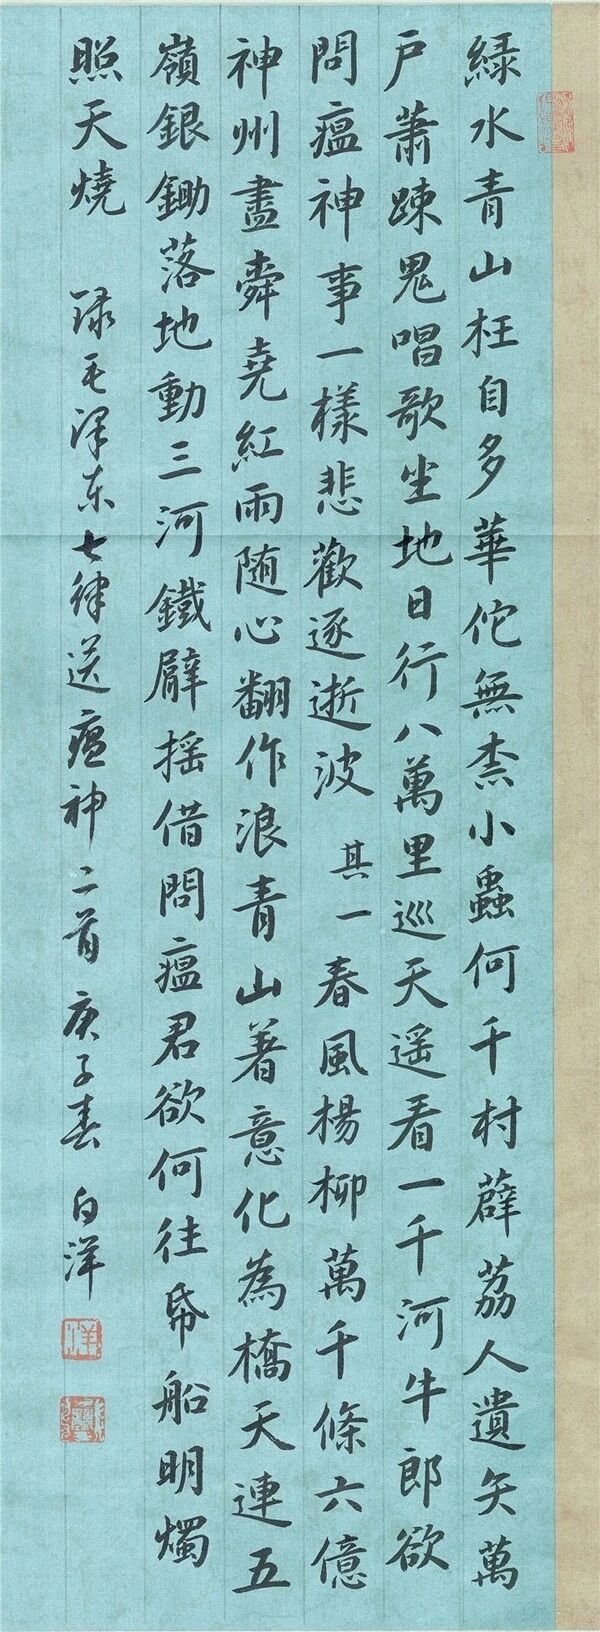 緑水青山枉自多華佗無柰小蟲何千村薜荔人遺矢萬
戶蕭疎鬼唱歌坐地日行八萬里巡天遥看一千河牛郎欲
問瘟神事一樣悲歡逐逝波 其一 春風楊柳萬千條六億
神州盡舜堯紅雨随心翻作浪青山着意化為橋天連五
嶺銀鋤落地動三河鐵臂摇借問瘟君欲何往帋船明燭
照天燒 録毛泽东七律送瘟神二首 庚子春 白洋